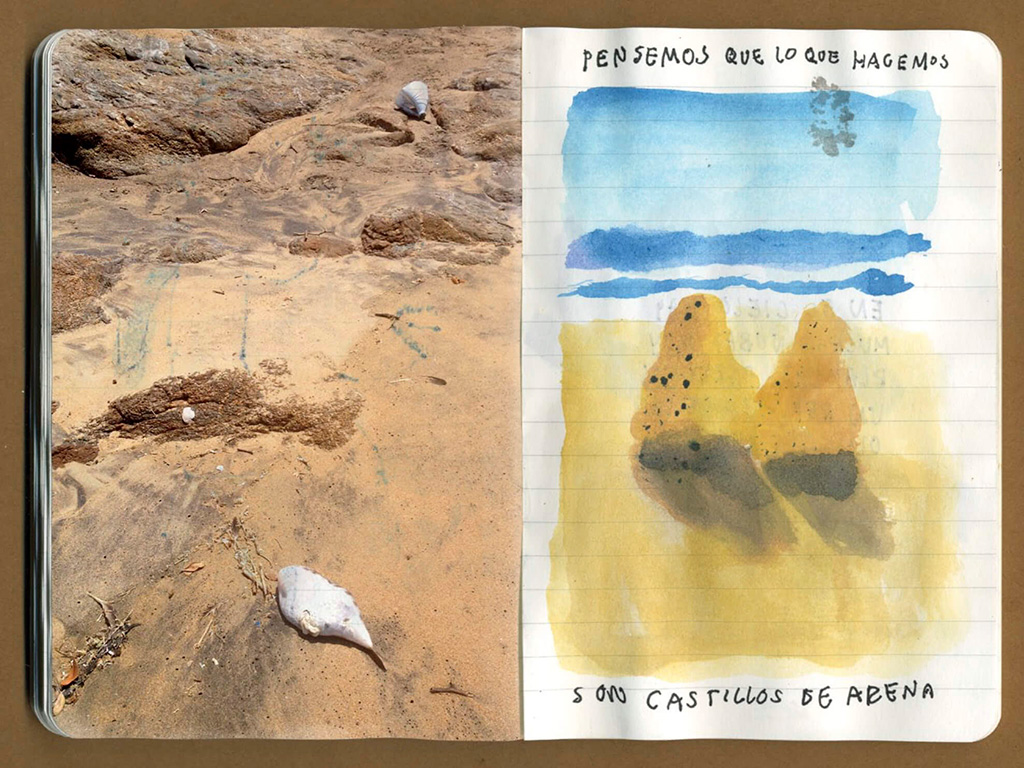 PENSEMOS QUE LO QUE HACEMOS
SON CASTILLOS DE ARENA